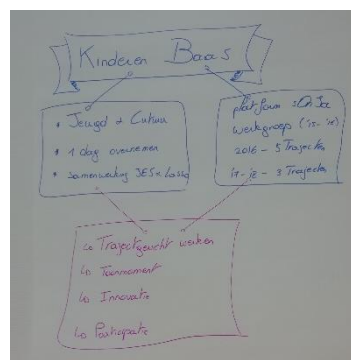 Kinderen Baas
* Jeugd & Cultuur
* 1 dag overnemen
* Samenwerking JES & Lasso
platform
werkgroep ('15-'16)
2016 - 5 Trajecten
- 3 Trajecten
↳ Trajectgericht werken
↳ Tournament
↳ Innovatie
↳ Participatie